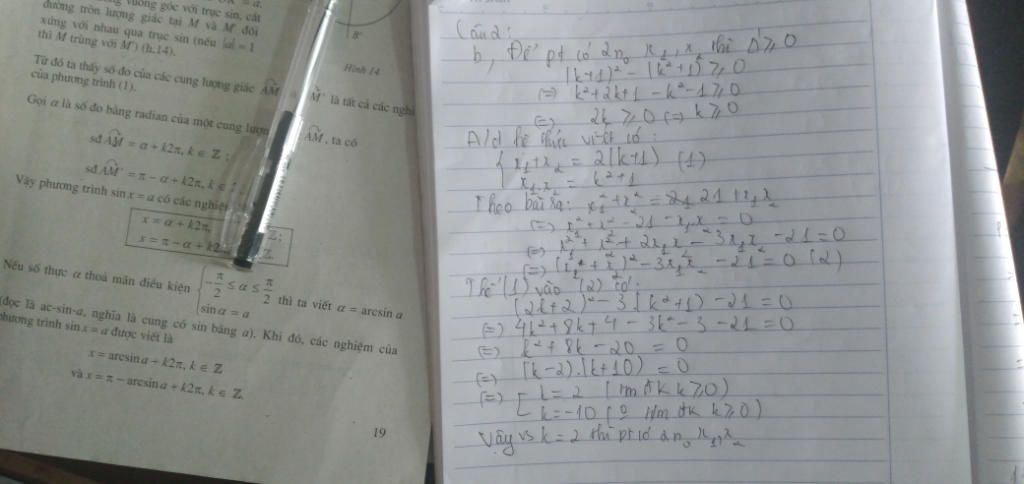 vuông góc với trục sin, cắt
đường tròn lượng giác tại M và M' đối
xứng với nhau qua trục sin (nếu |a| = 1
thì M trùng với M') (h.14).
B'
Hình 14
Từ đó ta thấy số đo của các cung lượng giác AM M' là tất cả các
của phương trình (1).
Gọi α là số đo bằng radian của một cung AM, ta có
sđ AM = α + k2π, k ∈ Z ;
sđ AM' = π − α + k2π, k ∈
Vậy phương trình sin x = a có các
x = α + k2π, Z ;
x = π − α + Z.
Nếu số thực α thoả mãn điều kiện { −π/2 ≤ α ≤ π/2 thì ta viết α = arcsin a
sin α = a
(đọc là ac-sin-a, nghĩa là cung có sin bằng a). Khi đó, các nghiệm của
phương trình sin x = a được viết là
x = arcsin a + k2π, k ∈ Z
và x = π − arcsin a + k2π, k ∈ Z.
19
Câu 2:
b, Để pt có 2 n₀ x₁, x₂ thì Δ' ≥ 0
(k+1)² − (k²+1) ≥ 0
(=) k² + 2k + 1 − k² − 1 ≥ 0
(=) 2k ≥ 0 (=) k ≥ 0
A/d hệ thức vi-ét có :
{ x₁ + x₂ = 2(k+1) (1)
x₁.x₂ = k² + 1
Theo bài ra: x₁² + x₂² = 21 + x₁x₂
(=) x₁² + x₂² − 21 − x₁x₂ = 0
(=) x₁² + x₂² + 2x₁x₂ − 3x₁x₂ − 21 = 0
(=) (x₁ + x₂)² − 3x₁x₂ − 21 = 0 (2)
Thế (1) vào (2) có :
(2k+2)² − 3(k²+1) − 21 = 0
(=) 4k² + 8k + 4 − 3k² − 3 − 21 = 0
(=) k² + 8k − 20 = 0
(=) (k−2).(k+10) = 0
(=) [ k = 2 (tm đk k ≥ 0)
k = −10 (o t/m đk k ≥ 0)
Vậy vs k = 2 thì pt có 2 n₀ x₁, x₂